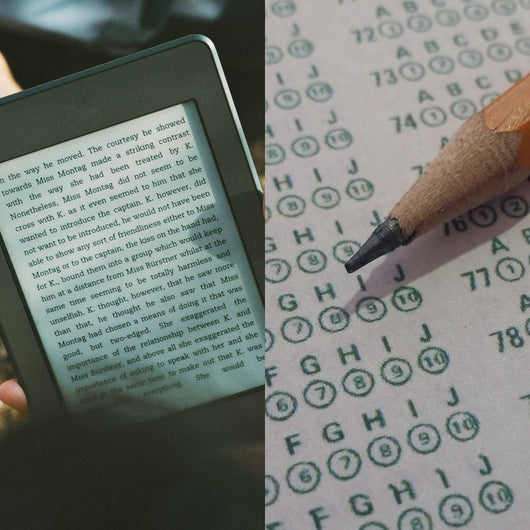 n the way he moved. The courtesy he showed
towards Miss Montag made a striking contrast
with the way she had been treated by K.
Nonetheless, Miss Montag did not seem to be
cross with K. as it even seemed to him that she
wanted to introduce the captain. K. however, did
not want to be introduced, he would not have been
able to show any sort of friendliness either to Miss
Montag or to the captain, the kiss on the hand had,
for K., bound them into a group which would keep
him at a distance from Miss Bürstner whilst at the
same time seeming to be totally harmless and
unselfish. K. thought, however, that he saw more
than that, he thought he also saw that Miss
Montag had chosen a means of doing it that was
good, but two-edged. She exaggerated the
importance of the relationship between K. and
Miss Bürstner, and above all she exaggerated the
importance of asking to speak with her and she
at the same time to make out that K. was
everything. She would be
A B C D
72 1 2 3
A B C D E
73 1 2 3 4
A B C D
74 1 2
76 1
A
77 1
A
78 1
I J
9 10
I J
9 10
H I J
8 9 10
H I J
8 9 10
H
7 8 9
G H I J
7 8 9 10
G H I J
6 7 8 9 10
F G H I J
6 7 8 9 10
F G H I J
8 9 10